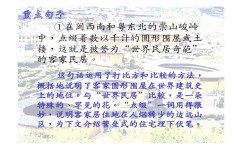 重点句子
①在闽西南和粤东北的崇山峻岭
中，点缀着数以千计的圆形围屋或土
楼，这就是被誉为“世界民居奇葩”
的客家民居。
这句话运用了打比方和比较的方法，
概括地说明了客家围形围屋在世界建筑史
上的地位。与“世界民居”比较，是一朵
特殊的、罕见的花。“点缀”一词用得很
妙，说明客家居住地在人烟稀少的边远山
区，为下文介绍营垒式的住宅埋下伏笔。